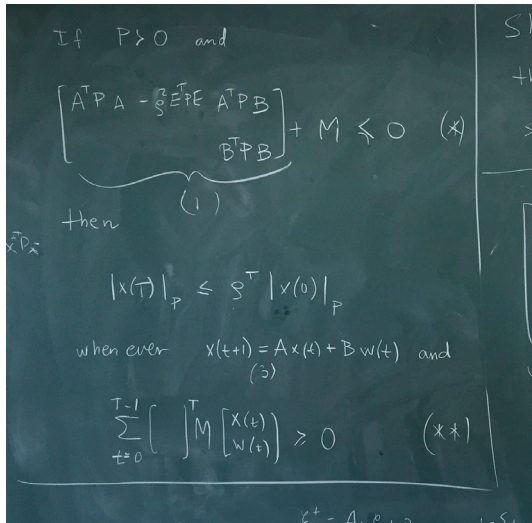 If P≻0 and
[AᵀPA - ρ²EᵀPE AᵀPB
BᵀPB] + M ≼ 0 (*)
(1)
then
|x(T)|_P ≤ ρᵀ |x(0)|_P
when ever x(t+1) = Ax(t) + Bw(t) and
T-1
∑ [ ]ᵀ M [x(t)
w(t)] ≥ 0 (**)
t=0